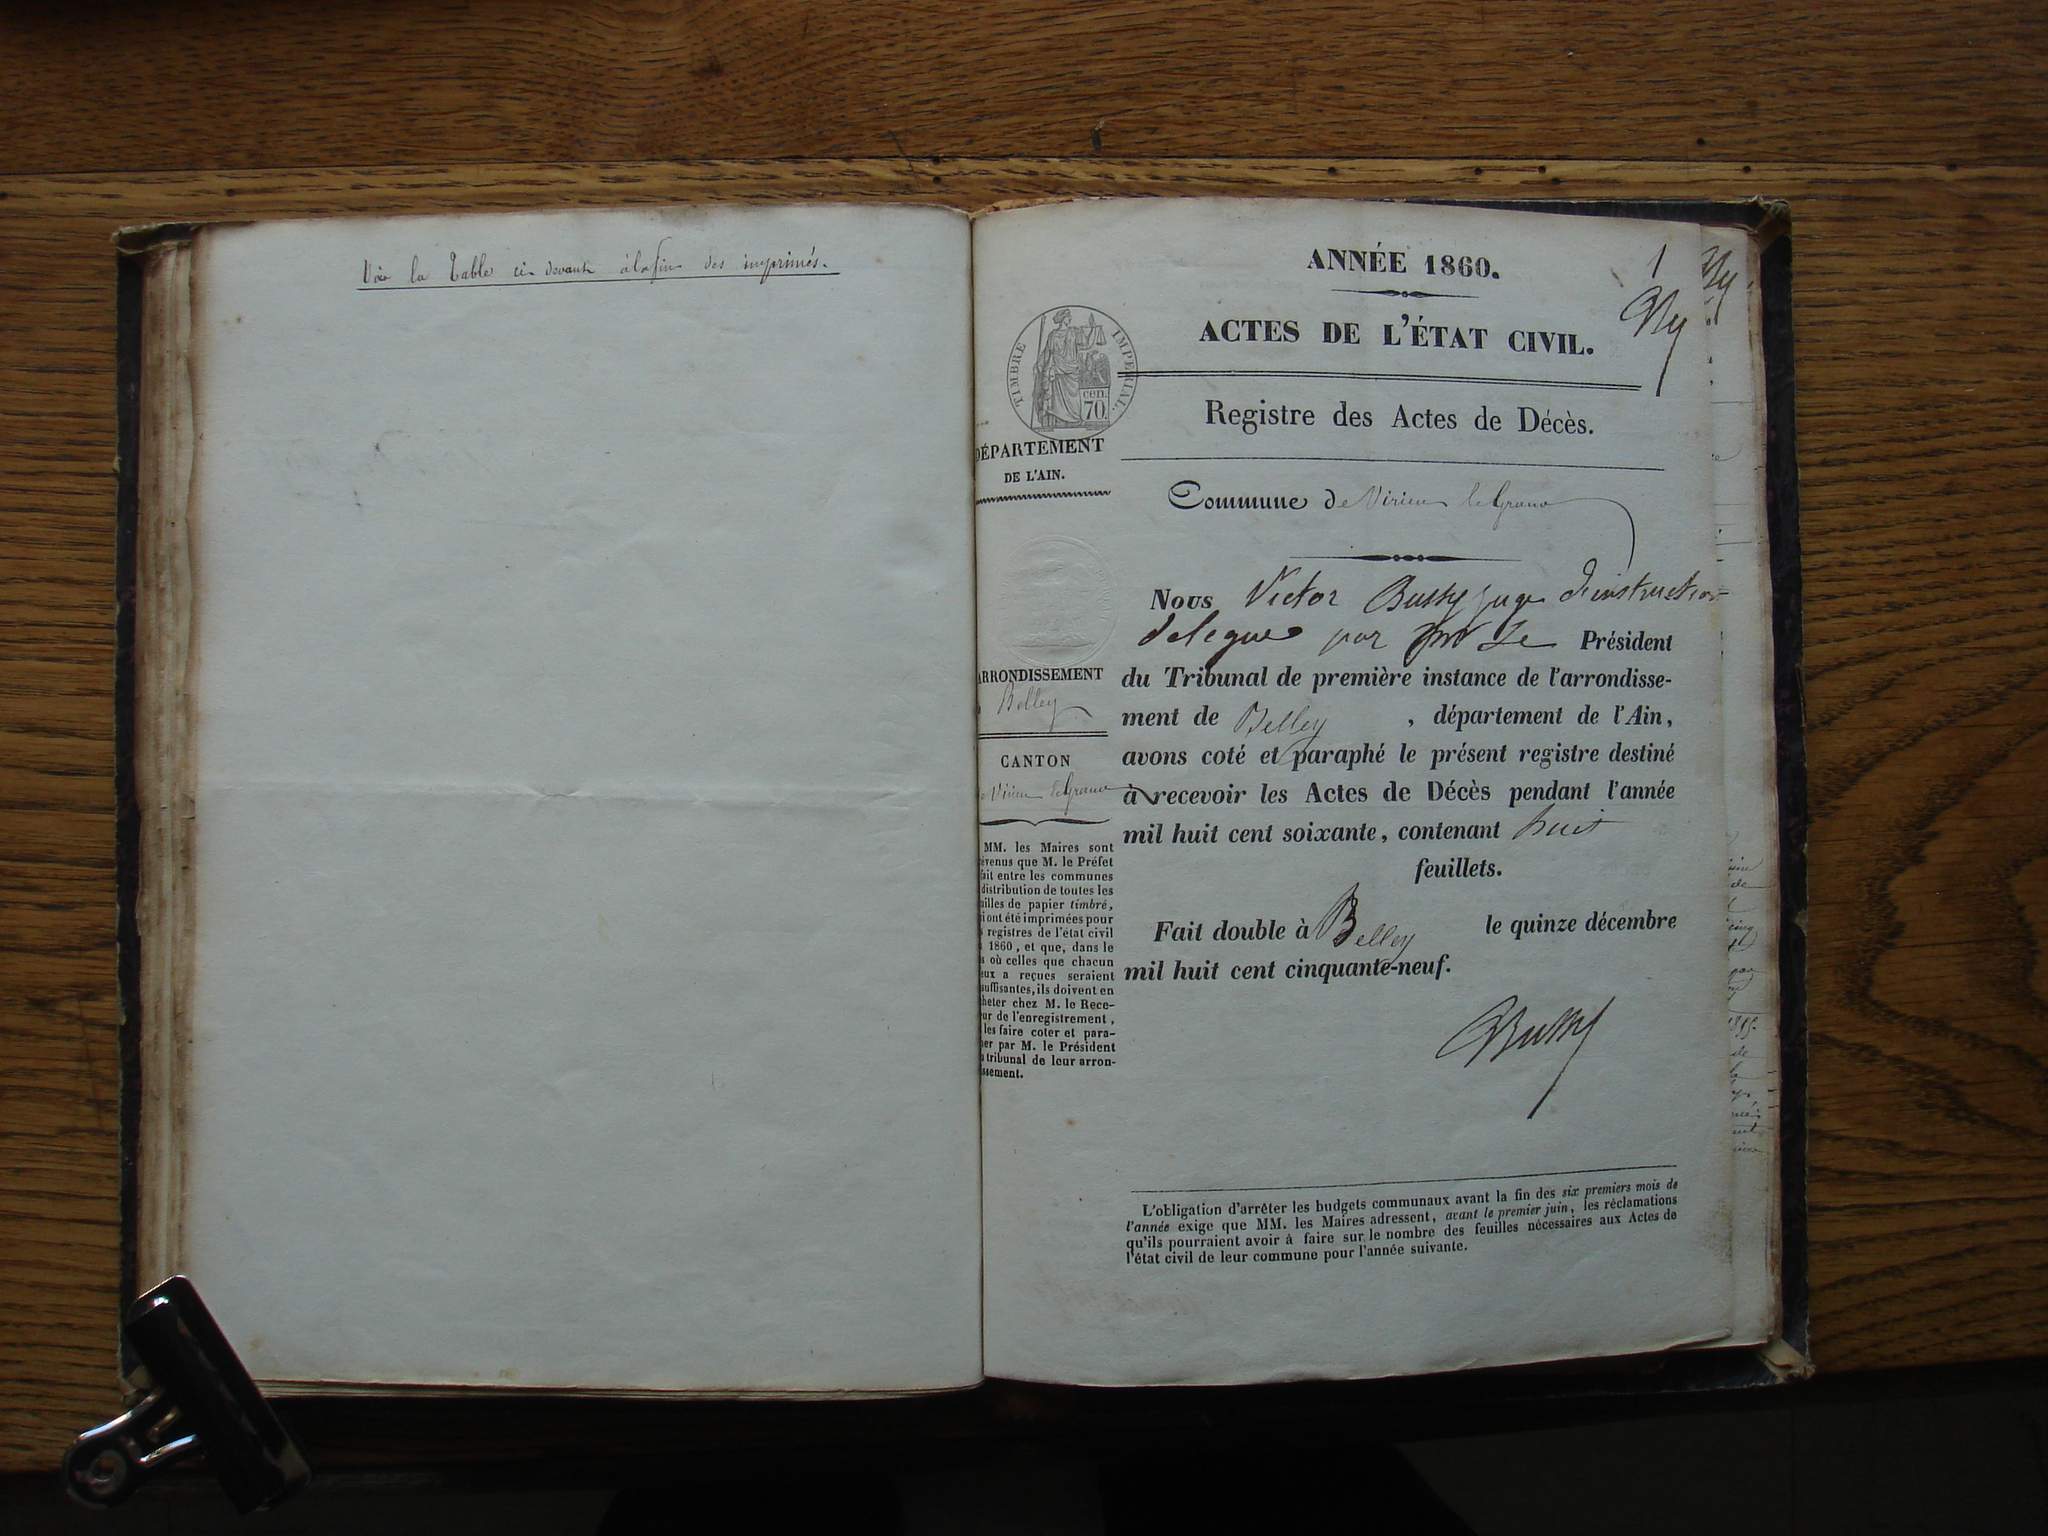 Voir la Table ci-devant à la fin des imprimés.
ANNÉE 1860.
1
ACTES DE L'ÉTAT CIVIL.
TIMBRE IMPERIAL.
cen. 70.
Registre des Actes de Décès.
DÉPARTEMENT
DE L'AIN.
Commune de Virieu le Grand
Nous Victor Bussy juge d'instruction
delegué par Mr Le Président
du Tribunal de première instance de l'arrondisse-
ment de Belley, département de l'Ain,
avons coté et paraphé le présent registre destiné
à recevoir les Actes de Décès pendant l'année
mil huit cent soixante, contenant huit
feuillets.
Fait double à Belley le quinze décembre
mil huit cent cinquante-neuf.
Bussy
ARRONDISSEMENT
Belley
CANTON
de Virieu le Grand
MM. les Maires sont
évenus que M. le Préfet
fait entre les communes
distribution de toutes les
uilles de papier timbré,
i ont été imprimées pour
s registres de l'état civil
1860, et que, dans le
s où celles que chacun
eux a reçues seraient
suffisantes, ils doivent en
cheter chez M. le Rece-
ur de l'enregistrement,
les faire coter et para-
her par M. le Président
u tribunal de leur arron-
ssement.
L'obligation d'arrêter les budgets communaux avant la fin des six premiers mois de
l'année exige que MM. les Maires adressent, avant le premier juin, les réclamations
qu'ils pourraient avoir à faire sur le nombre des feuilles nécessaires aux Actes de
l'état civil de leur commune pour l'année suivante.